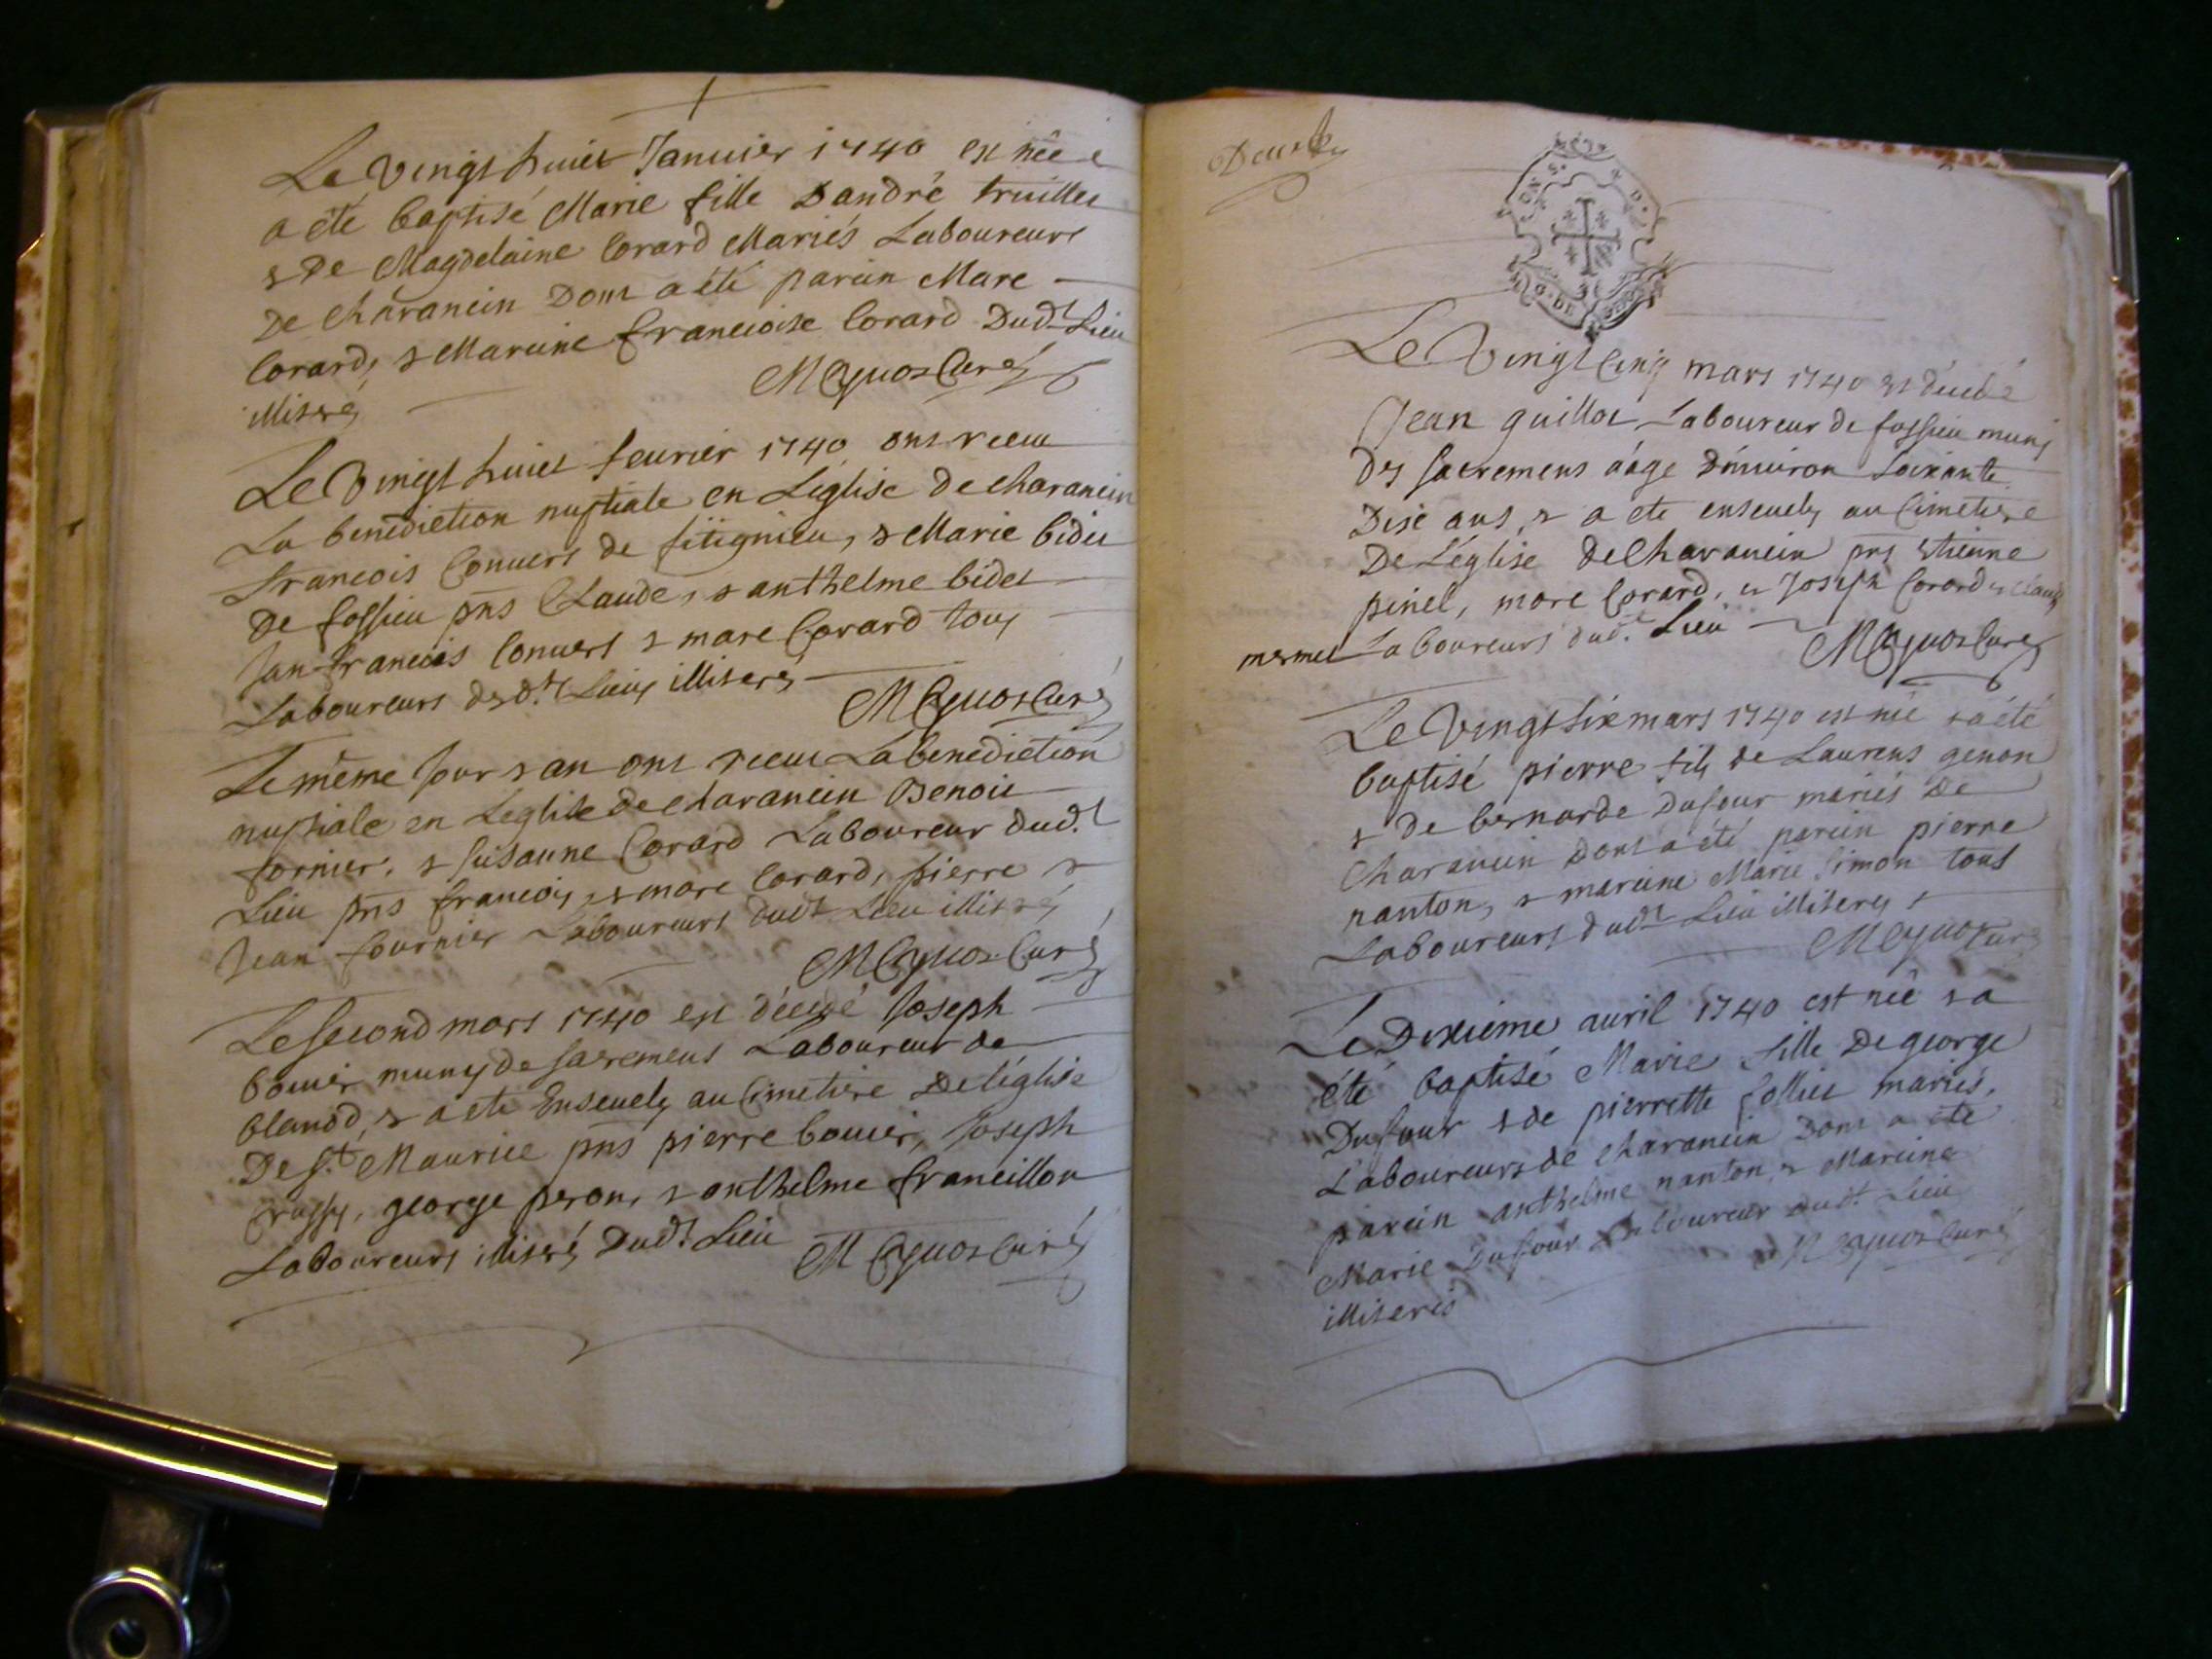 Le vingt huict Januier 1740 est née &
a été baptisé Marie fille Dandré truillet
& De Magdelaine Corard Mariés Laboureurs
De Charancin Dont a été parcin Marc
Corard, & Marcine francoise Corard Dud.t Lieu
illiterés
Curé
Le Vingt huict feurier 1740 ont receu
La benediction nuptiale en L'église de charancin
francois Conuers de fitignieu, & Marie bidet
De fossieu pns Claude, & anthelme bidet
Jan-francois Conuers & marc Corard tous
Laboureurs desd.ts Lieux illiterés
Curé
Le même Jour & an ont receu La benediction
nuptiale en Leglise de charancin Benoit
fornier, & susanne Corard Laboureur dud.t
Lieu pns francois, & marc Corard, pierre &
Jean fournier Laboureurs dudt Lieu illiterés
Curé
Le second mars 1740 est décedé Joseph
bouuier muny de sacremens Laboureur de
blanod, & a eté Enseuely au Cimetiere De l'église
De s.t Maurice pns pierre bouuier, Joseph
george peron, & anthelme francillon
Laboureurs illiterés Dud.t Lieu
Curé
Le Vingt Cinq mars 1740 est décedé
Jean guillot Laboureur de fossieu muny
Des sacremens áagé Dénuiron soixante
Dise ans, & a eté enseuely au Cimetiere
De L'église de Charancin pns Etienne
pinel, marc Corard, et Joseph Corard & Claude
mermet Laboureurs dud.t Lieu
Curé
Le Vingt six mars 1740 est née & a été
baptisé pierre fils de Laurens genon
& De bernarde Dufour mariés De
Charancin Dont a été parcin pierre
nanton, & marcine Marie Simon tous
Laboureurs dudt Lieu illiterés &
Curé
Le Dixieme auril 1740 est née & a
été baptisé Marie fille De george
Dufour & de pierrette follict mariés,
Laboureurs de charancin Dont a eté
parcin anthelme nanton, & Marcine
Marie Dufour Laboureur dud.t Lieu
illiterés
Curé